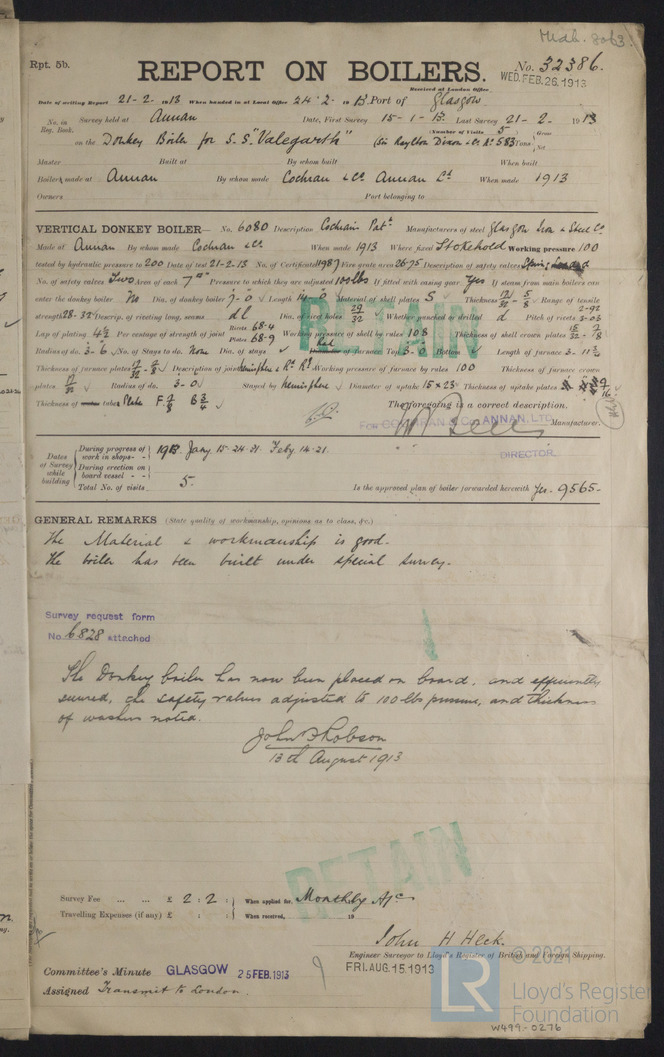 Midb.
Rpt. 5b.
REPORT ON BOILERS.
No. 32386.
Received at London Office
WED. FEB. 26 1913
Date of writing Report 21-2-1913 When handed in at Local Office 24.2.1913 Port of Glasgow
No. in Reg. Book.
Survey held at Annan Date, First Survey 15-1-13 Last Survey 21-2-1913
(Number of Visits 5)
on the Donkey Boiler for S.S. "Valegarth" (Sir Raylton Dixon & Co. No 583) Tons { Gross Net
Master Built at By whom built When built
Boilers made at Annan By whom made Cochran & Co Annan Ld When made 1913
Owners Port belonging to
VERTICAL DONKEY BOILER— No. 6080 Description Cochran Patt Manufacturers of steel Glasgow Iron & Steel Co
Made at Annan By whom made Cochran & Co. When made 1913 Where fixed Stokehold Working pressure 100
tested by hydraulic pressure to 200 Date of test 21-2-13 No. of Certificate 11987 Fire grate area 26.75 Description of safety valves Spring
No. of safety valves Two Area of each 7" Pressure to which they are adjusted 100 lbs If fitted with easing gear Yes If steam from main boilers can
enter the donkey boiler No Dia. of donkey boiler 7-0 Length 14-0 Material of shell plates S Thickness Range of tensile
strength 28-32 Descrip. of riveting long. seams d l Dia. of rivet holes 29/32 Whether punched or drilled d Pitch of rivets
Lap of plating 4½ Per centage of strength of joint Rivets 68.4 Plates 68.9 Working pressure of shell by rules 108 Thickness of shell crown plates
Radius of do. 3-6 No. of Stays to do. None Dia. of stays Diameter of furnace Top 3-0 Bottom Length of furnace 3-11½
Thickness of furnace plates Description of joint Working pressure of furnace by rules 100 Thickness of furnace crown
plates 17/32 Radius of do. 3-0 Stayed by hemisphere Diameter of uptake 15x23 Thickness of uptake plates 9/16
Thickness of tube Plate F. 7/8 B 3/4
The foregoing is a correct description.
FOR COCHRAN & CO. ANNAN, LTD. Manufacturer.
DIRECTOR.
Dates of Survey while building
During progress of work in shops - - 1913. Jany. 15-24-31. Feby. 14-21.
During erection on board vessel - - -
Total No. of visits 5.
Is the approved plan of boiler forwarded herewith Yes - 9565 -
GENERAL REMARKS (State quality of workmanship, opinions as to class, &c.)
The Material & workmanship is good.
The boiler has been built under special survey.
Survey request form
No. 6828 attached
The Donkey boiler has now been placed on board, and efficiently
secured, the safety valves adjusted to 100 lbs pressure, and thickness
of washers noted.
John Robson
13th August 1913
RETAIN
RETAIN
Survey Fee ... ... £ 2 : 2 : When applied for, Monthly A/c
Travelling Expenses (if any) £ : : When received, 19
John H Heck.
Engineer Surveyor to Lloyd's Register of British and Foreign Shipping.
FRI. AUG. 15 1913
Committee's Minute GLASGOW 25 FEB. 1913
Assigned Transmit to London.
LR
© 2021
Lloyd's Register
Foundation
W499-0276